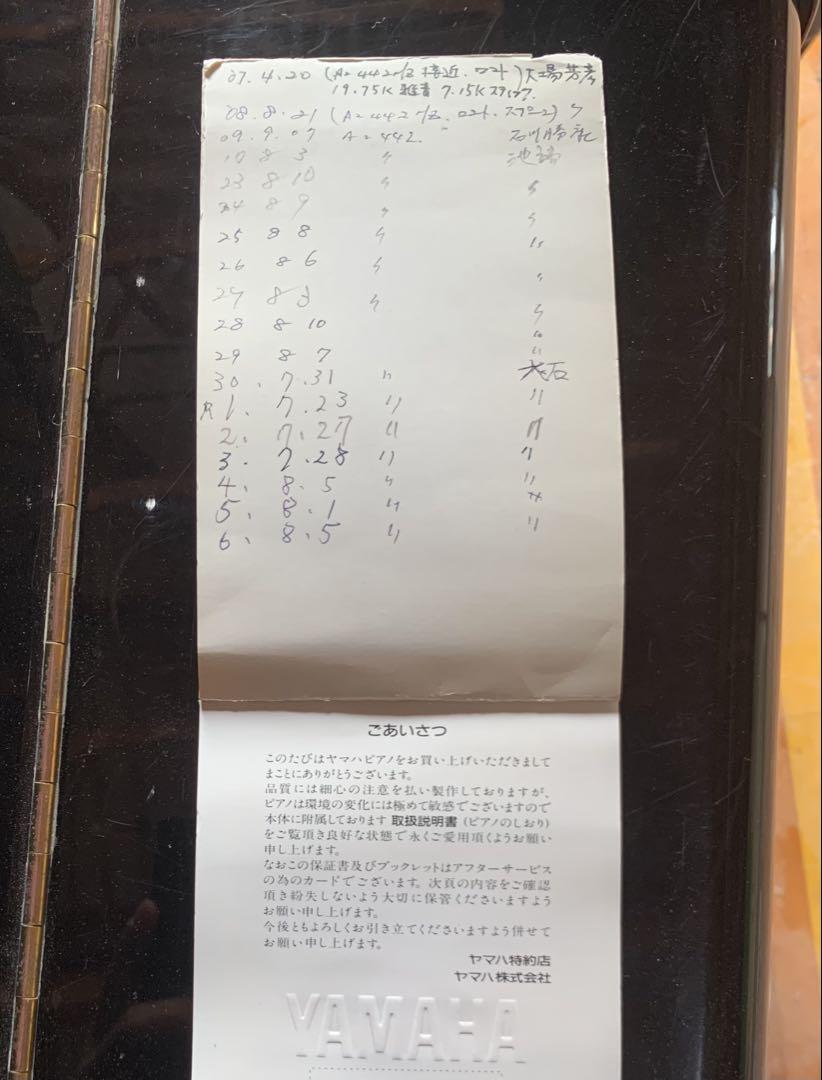 '07.4.20 (A=442Hz 接近.ロスト) 大場芳彦
19.75K 雑音 7.15K
'08.8.21 (A=442Hz. 〃
09.9.07 A=442.
10 8 3 〃 池端
23 8 10 〃 〃
24 8 9 〃 〃
25 8 8 〃 〃
26 8 6 〃 〃
27 8 3 〃 〃
28 8 10 〃
29 8 7 〃
30. 7.31 〃 大石
R1. 7.23 〃 〃
2. 7.27 〃 〃
3. 7.28 〃 〃
4. 8.5 〃 〃
5. 8.1 〃 〃
6. 8.5 〃 〃
ごあいさつ
このたびはヤマハピアノをお買い上げいただきまして
まことにありがとうございます。
品質には細心の注意を払い製作しておりますが、
ピアノは環境の変化には極めて敏感でございますので
本体に附属しております取扱説明書(ピアノのしおり)
をご覧頂き良好な状態で永くご愛用頂くようお願い
申し上げます。
なおこの保証書及びブックレットはアフターサービス
の為のカードでございます。次頁の内容をご確認
頂き紛失しないよう大切に保管くださいますよう
お願い申し上げます。
今後ともよろしくお引き立てくださいますよう併せて
お願い申し上げます。
ヤマハ特約店
ヤマハ株式会社
YAMAHA